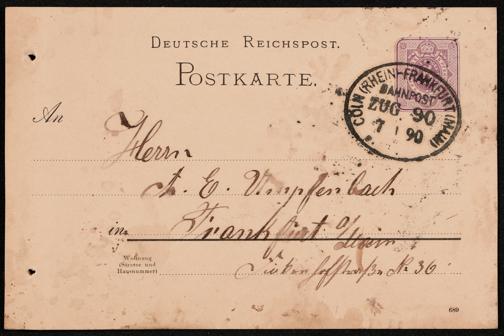 DEUTSCHE REICHSPOST.
POSTKARTE.
CÖLN (RHEIN)-FRANKFURT (MAIN)
BAHNPOST
ZUG 90
7 90
An
Herrn
E. Umpfenbach
in Frankfurt a/Main
Wohnung
(Strasse und
Hausnummer)
No 36
689